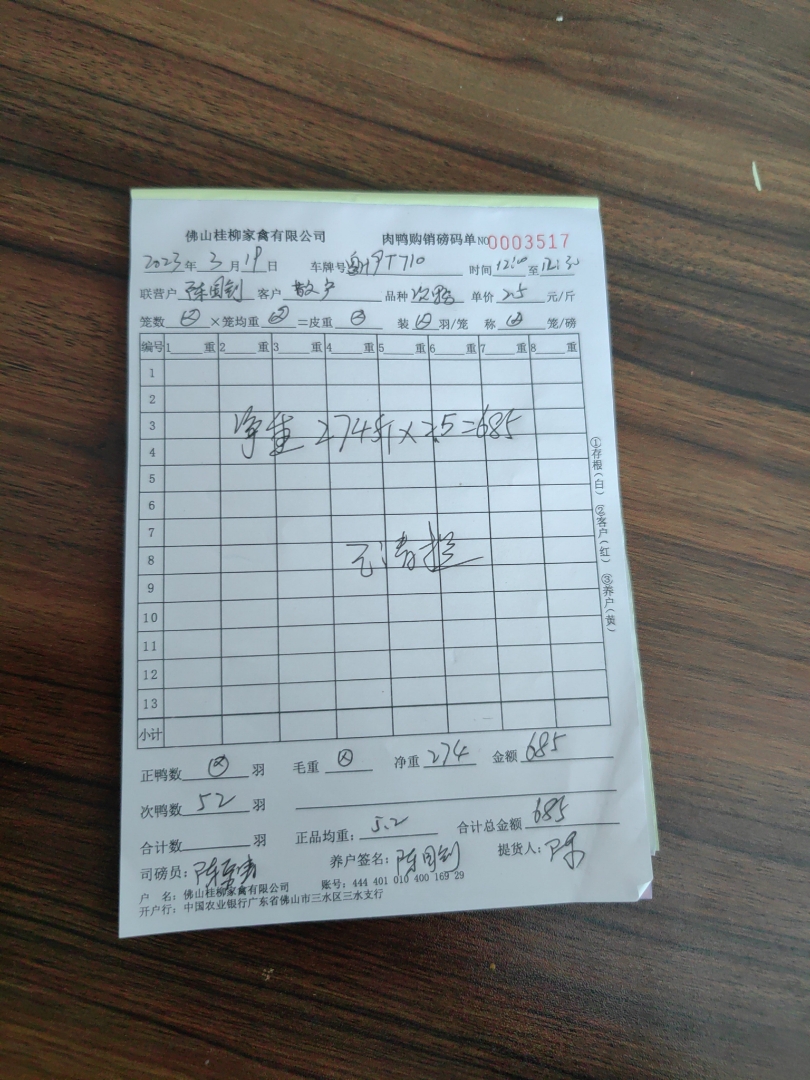 佛山桂柳家禽有限公司 肉鸭购销磅码单 NO 0003517
2023年3月19日 车牌号 T710 时间 12:00 至 12:30
联营户 陈国钊 客户 散户 品种 次鸭 单价 2.5 元/斤
笼数 ×笼均重 =皮重 装 羽/笼 称 笼/磅
编号 1 重 2 重 3 重 4 重 5 重 6 重 7 重 8 重
1
2
3
净重 274斤×2.5=685
4
5
6
7
8
9
10
11
12
13
小计
①存根(白) ②客户(红) ③养户(黄)
正鸭数 羽 毛重 净重 274 金额 685
次鸭数 52 羽
合计数 羽 正品均重: 5.2 合计总金额 685
司磅员: 陈 养户签名: 陈国钊 提货人: 陈
户 名: 佛山桂柳家禽有限公司 账号: 444 401 010 400 169 29
开户行: 中国农业银行广东省佛山市三水区三水支行